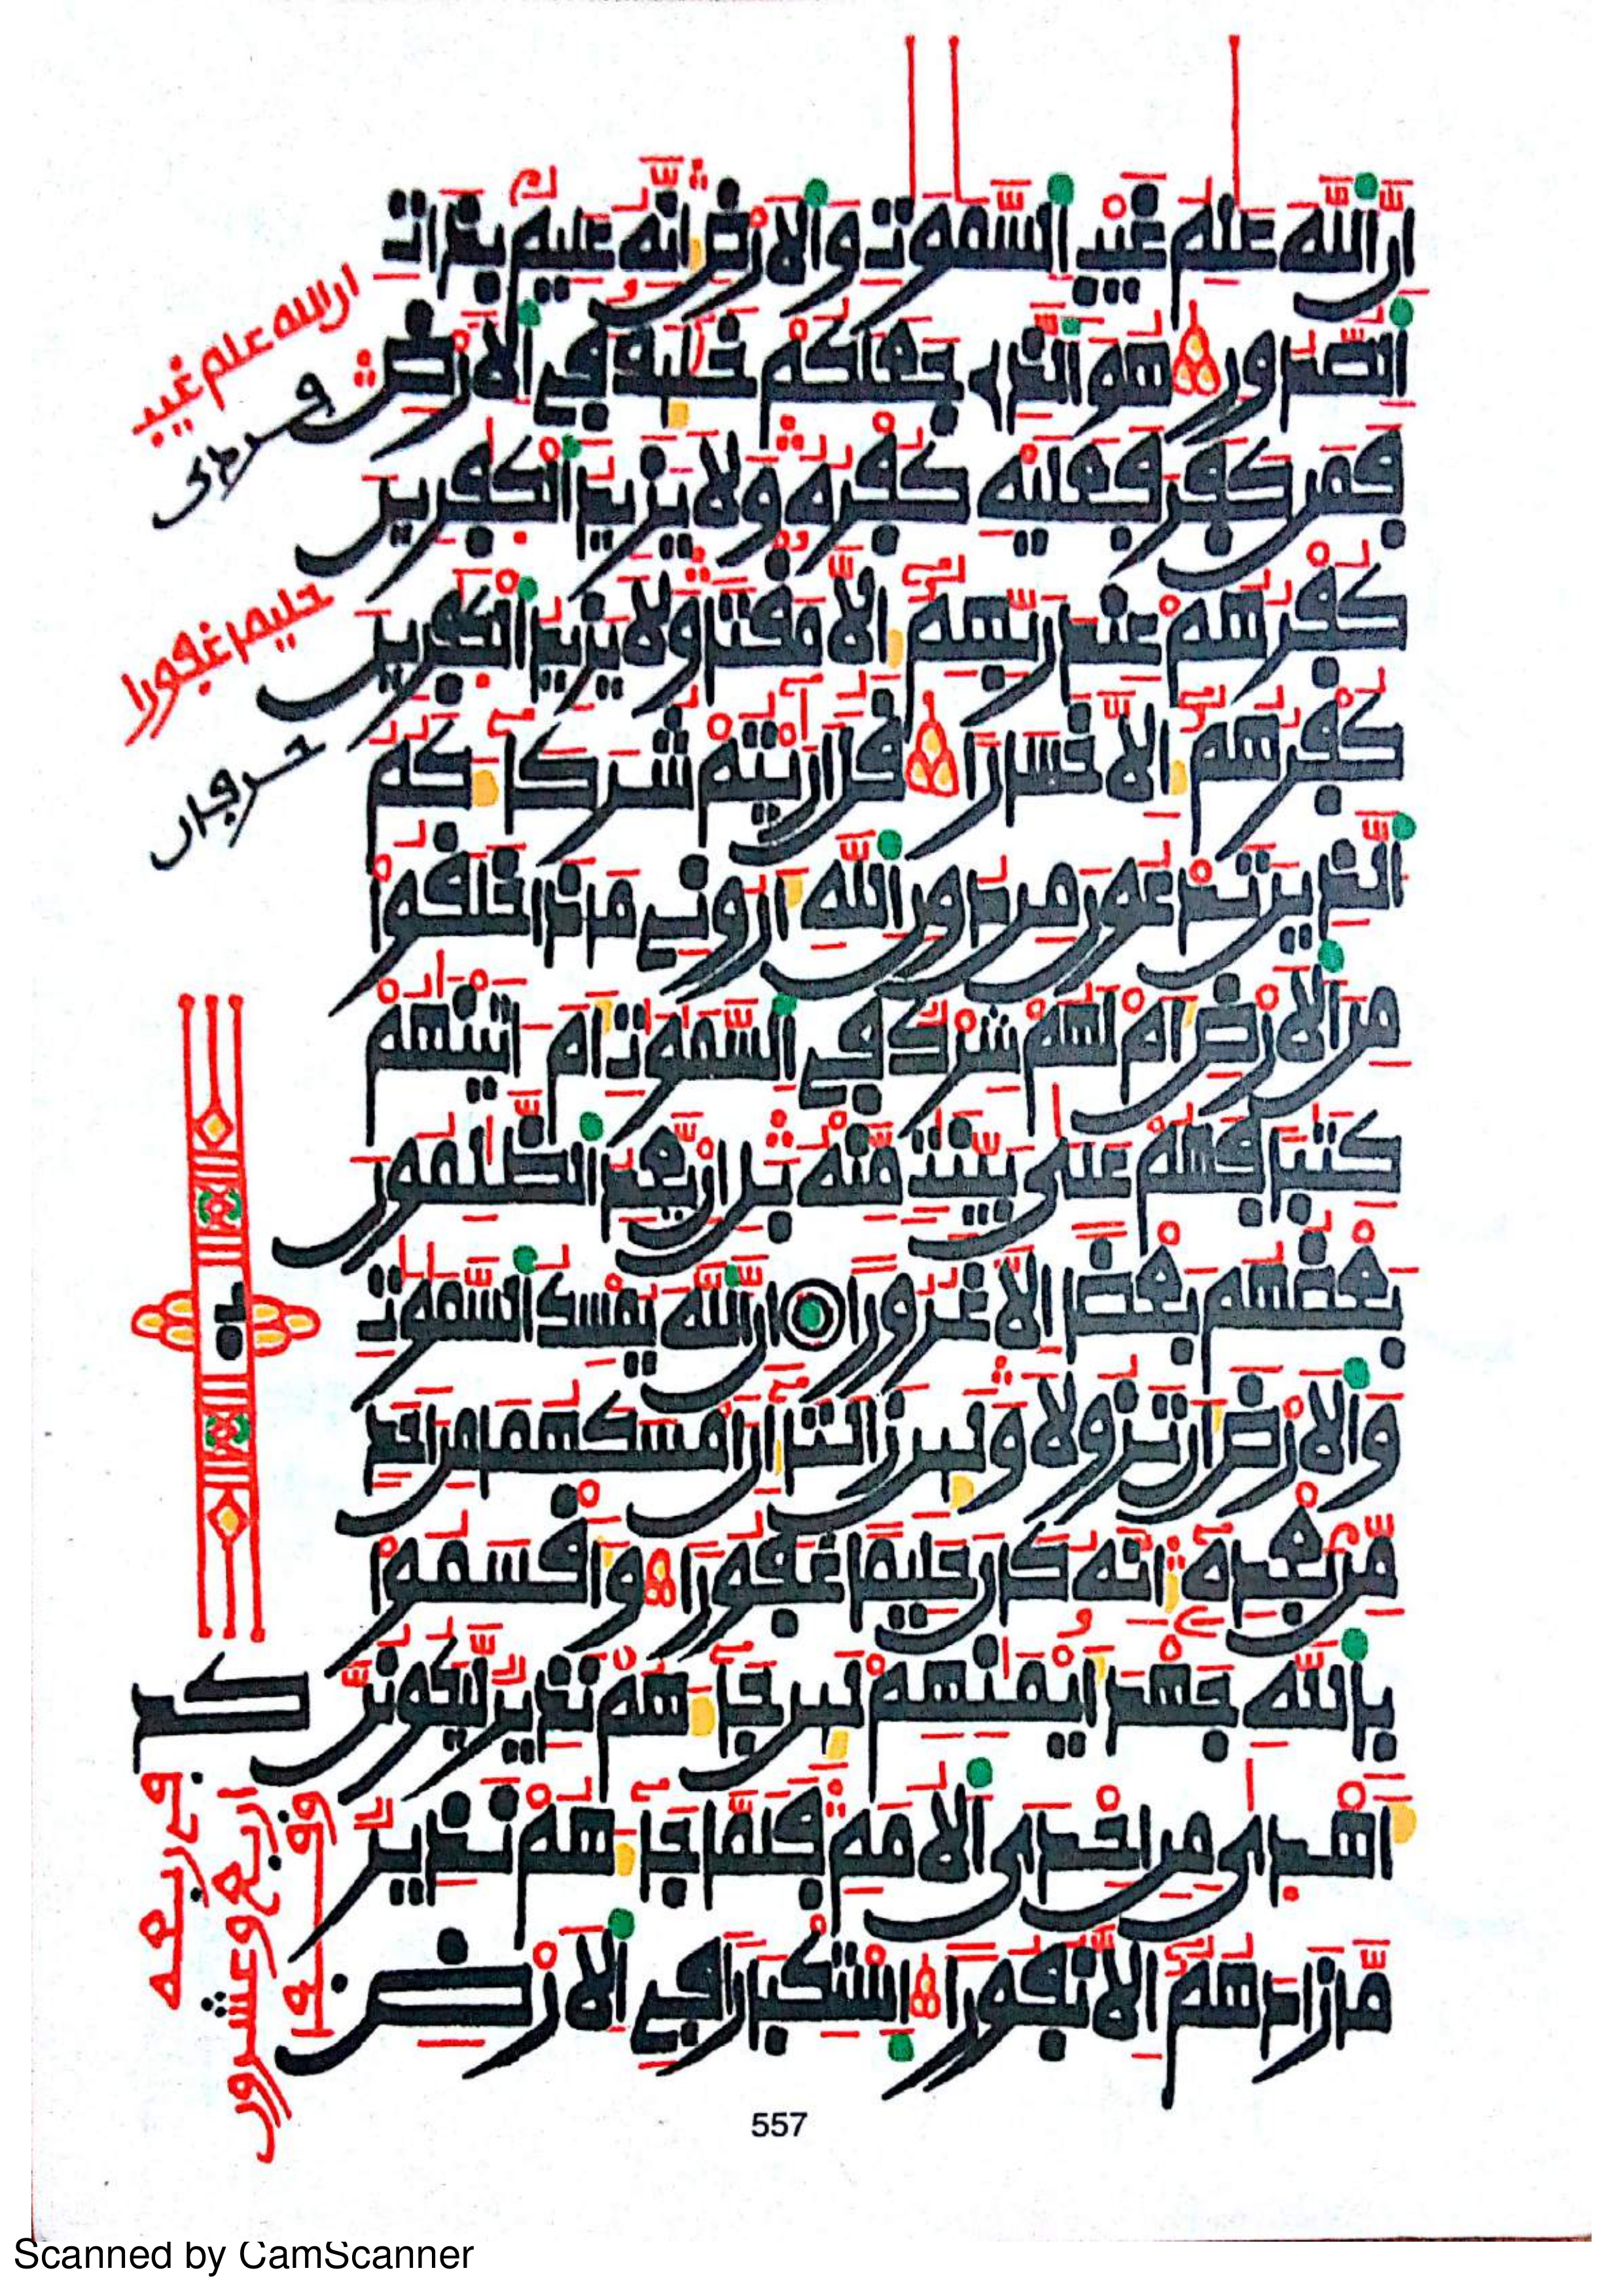 ان الله علم غيب السموت والارض انه عليم بذات
الصدور هو الذي جعلكم خليف في الارض
فمن كفر فعليه كفره ولا يزيد الكفرين
كفرهم عند ربهم الا مقتا ولا يزيد الكفرين
كفرهم الا خسارا قل ارايتم شركاءكم
الذين تدعون من دون الله اروني ماذا خلقوا
من الارض ام لهم شرك في السموت ام اتينهم
كتبا فهم على بينت منه بل ان يعد الظلمون
بعضهم بعضا الا غرورا ان الله يمسك السموت
والارض ان تزولا ولين زالتا ان امسكهما من احد
من بعده انه كان حليما غفورا واقسموا
بالله جهد ايمنهم لين جاءهم نذير ليكونن
اهدى من احدى الامم فلما جاءهم نذير
ما زادهم الا نفورا استكبارا في الارض
ان الله علم غيب
حليما غفورا
557
Scanned by CamScanner